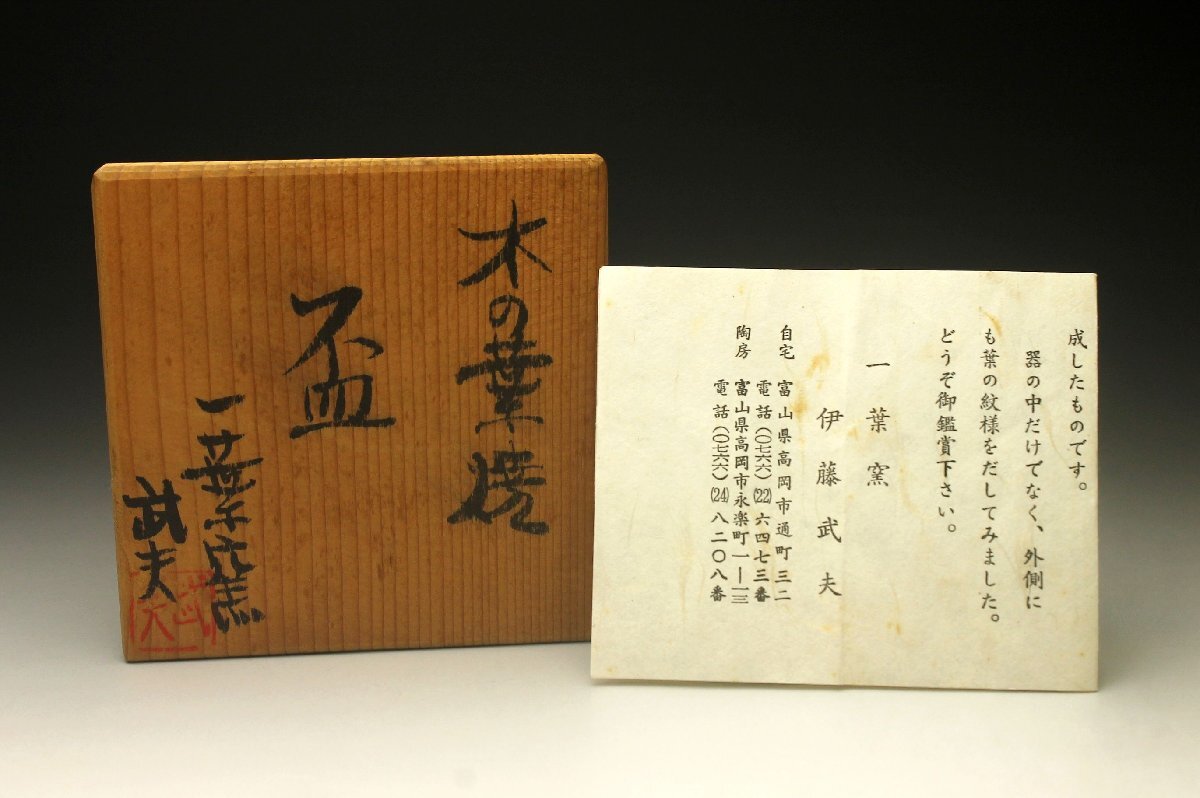 木の葉焼
盃
一葉窯
武夫
成したものです。
器の中だけでなく、外側に
も葉の紋様をだしてみました。
どうぞ御鑑賞下さい。
一葉窯
伊藤武夫
自宅 富山県高岡市通町三二
電話(〇七六六)(22)六四七三番
陶房 富山県高岡市永楽町一ー一三
電話(〇七六六)(24)八二〇八番